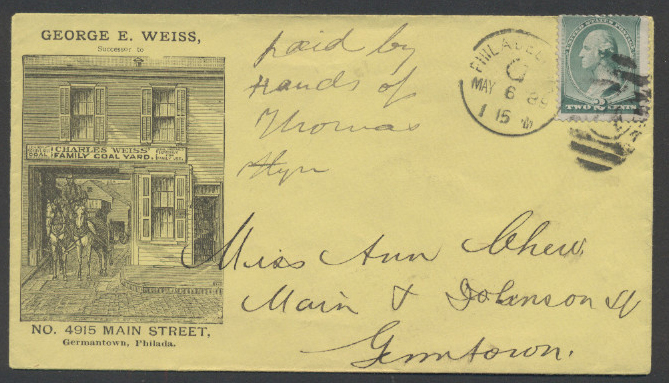 GEORGE E. WEISS,
Successor to
CHARLES WEISS'
FAMILY COAL YARD.
COAL
NO. 4915 MAIN STREET,
Germantown, Philada.
Paid by
Hands of
Thomas
PHILADEL
MAY 6 89
1 15
UNITED STATES POSTAGE
TWO 2 CENTS
Miss Ann Chew.
Main & Johnson St
Germtown.